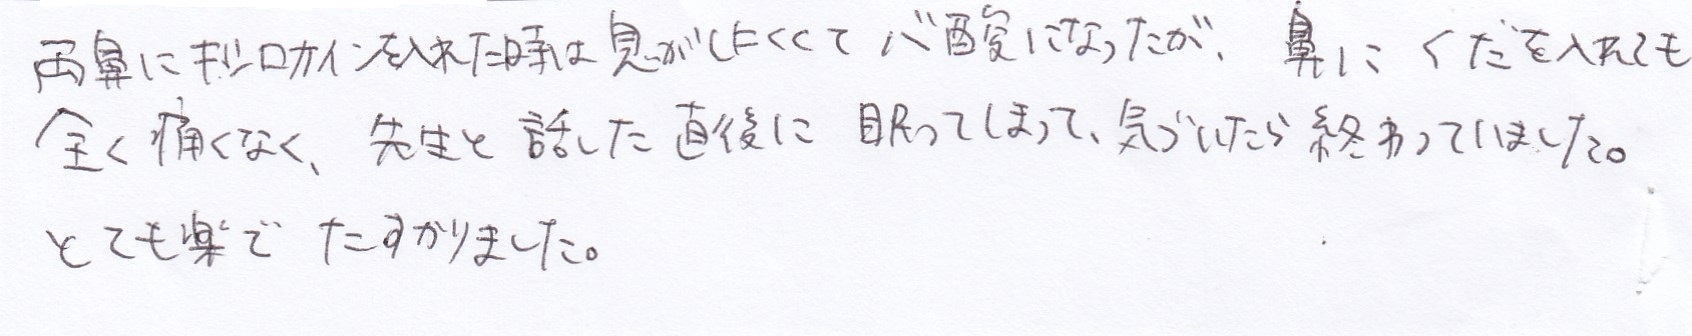 両鼻にキシロカインを入れた時は息がしにくくて心配になったが、鼻にくだを入れても
全く痛くなく、先生と話した直後に眠ってしまって、気づいたら終わっていました。
とても楽で たすかりました。